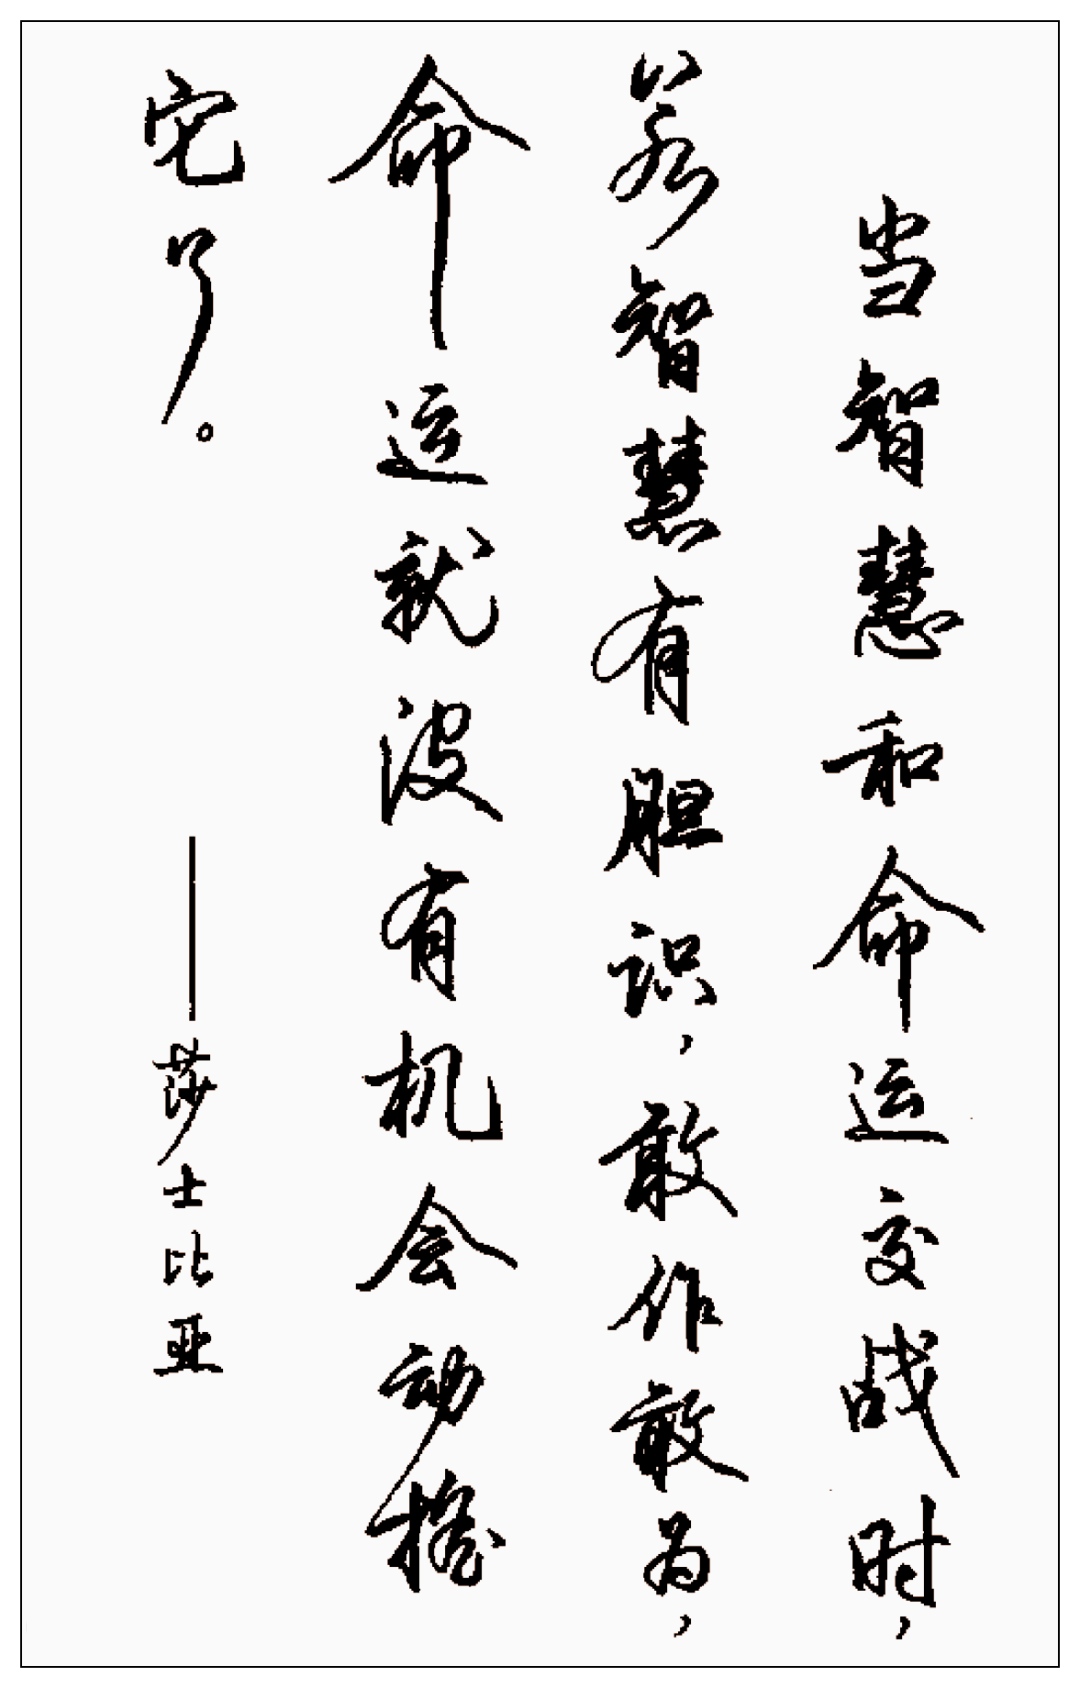 当智慧和命运交战时，
若智慧有胆识，敢作敢为，
命运就没有机会动摇
它了。
——莎士比亚